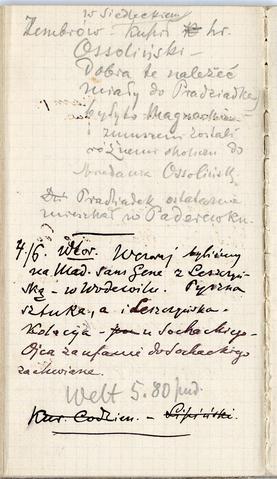 w Siedleckiem
Zembrów - kupił hr.
Ossoliński -
Dobra te należeć
miały do Pradziadka,
był to Magnat
i zmuszeni zostali
różnemi okolicz. do
sprzedania Ossolińsk.
Pradziadek ostatecznie
mieszkał w Paderewku.
4/6. Wtor. Wczoraj byliśmy
na Mad. sans Gene z Leszczyń-
ską - w Wodewilu. Pyszna
sztuka, a i Leszczyńska -
Kolacja - u Sochackiego -
Ojca zaufanie do Sochackiego
zachwiane.
Welt 5.80 pud.
Kur. Codzien. - Lipiński.